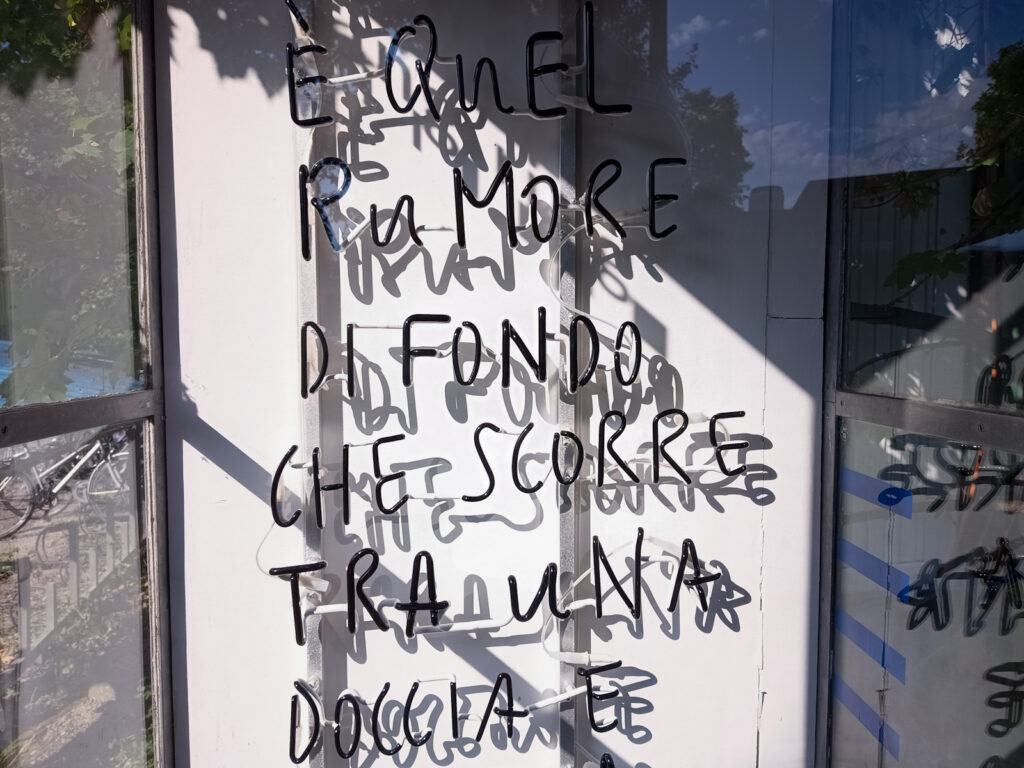 È QUEL
RUMORE
DI FONDO
CHE SCORRE
TRA UNA
DOCCIA E